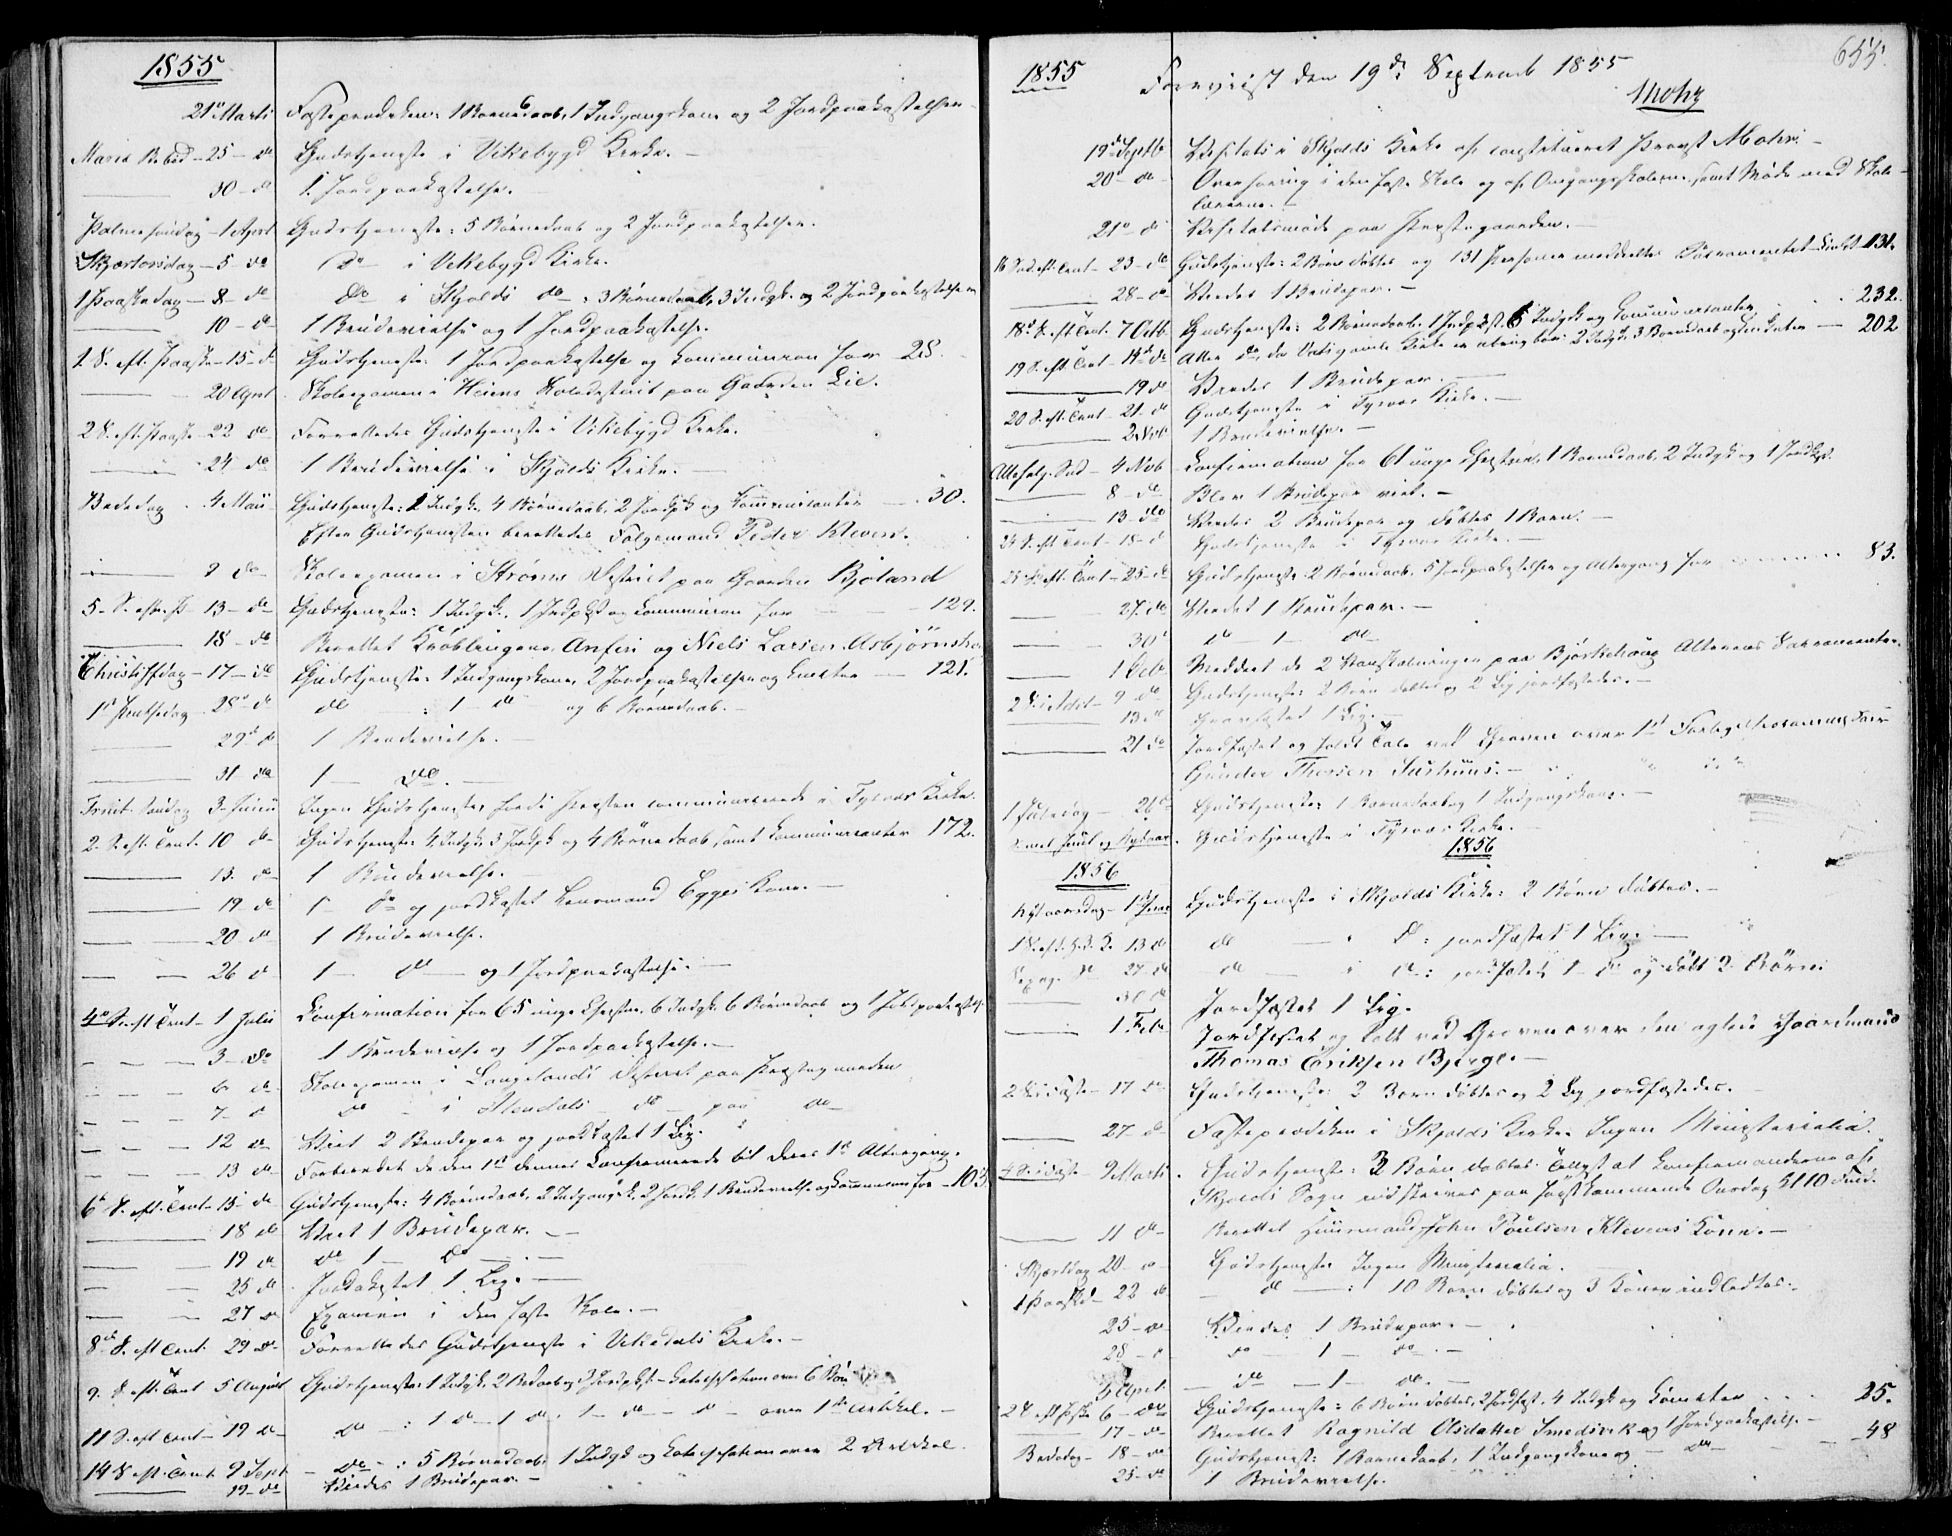 1855
21de Marti Fasteprædiken: 1 Barnedaab, 1 Indgangskone og 2 Jordpaakastelser
Mariæ Bebud. - 25 - do Gudstjeneste i Vikebygd Kirke. -
30 - do 1 Jordpaakastelse. -
Palmesøndag - 1 April Gudstjeneste: 5 Børnedaab og 2 Jordpaakastelser.
Skjærtorsdag - 5 - do do i Vikebygd Kirke.
1 Paaskedag - 8 - do do i Skjolds do : 3 Børnedaab, 3 Indgk. og 2 Jordpaakastelser
10 - do 1 Brudevielse og 1 Jordpaakastelse.
1 S. eft. Paaske - 15 - d Gudstjeneste 1 Jordpaakastelse og Communion for 28.
20 April Skoleexamen i Heiens Skoledistrict paa Gaarden Lie.
2 S. eft. Paaske - 22 do Forrettedes Gudstjeneste i Vikebygd Kirke.
24 do 1 Brudevielse i Skjolds Kirke. -
Bededag - 4 Maii Gudstjeneste: 1 Indgk. 4 Børnedaab, 2 Jordpk og Communicanter - 30.
Efter Gudstjenesten berettedes Følgemand Peder Kleven.
9 do Skoleexamen i Strøms District paa Gaarden Bjoland
5 - S. eft. P. 13 - do Gudstjeneste: 1 Indgk., 1 Jordpkst og Communion for - 129.
18 - do Berettet Kroblingene Anfin og Niels Larsen Asbjørnsho
Christi Hfdag - 17 - do Gudstjeneste: 1 Indgangskone, 2 Jordpaakastelser og Comter - 121.
1ste Pintsedag - 28 - d do : 1 - do og 6 Børnedaab. -
29 d 1 Brudevielse. -
31 do 1 - do. -
Trinit. Søndag 3 - Junii Ingen Gudstjeneste fordi Præsten communicerede i Tysvær Kirke.
2. S. eft. Trint. 10 do Gudstjeneste: 4 Indgk. 3 Jordpk og 4 Børnedaab, samt Communicanter 172.
13. do 1 Brudevielse. -
19 - do 1 - do og jordkastet Lensmand Egges Kone. -
20 do 1 Brudevielse.
26 d 1 - do - og 1 Jordpaakastelse. -
4de S. eft Trint - 1 Julii Confirmation for 65 unge Christne, 6 Indgk. 6 Børnedaab og 1 Jordpaakastels.
3 - do 1 Brudevielse og 1 Jordpaakastelse. -
6 - do Skoleexamen i Langelands District paa Præstegaarden
7 - d do - i Alendals - do - paa do -
12 do Viet 2 Brudepar og jordkastet 1 Lig. -
13 do Forberedet de den 1ste dennes Confirmerede til deres 1ste Altergang.
6te S. eft. Trint - 15 - do Gudstjeneste: 4 Børnedaab, 2 Indgangsk., 2 Jordk. 1 Brudevielse og Communion for - 103
18 do Viet 1 Brudepar. -
19 do do 1 do -
25 do Jordkastet 1 Lig. -
27 do Examen i den faste Skole. -
8de S. eft Trint. 29 do Forrettedes Gudstjeneste i Vikedals Kirke. -
9. S. eft. Trint 5 August Gudstjeneste: 1 Indgk. 2 Bdaab og 3 Jordpkst - Catechisation over 6 Bøn
11 S. eft Trint - 19 do do : 1 d - 1 do 1 - do - d - over 1ste Artikel. -
14 S. eft. Trint 9 Sept - do - : 5 Børnedaab, 1 Indgk og Catechisation over 2 Artikel.
19 - do Viedes 1 Brudepar. -
655.
1855 Forevist den 19de Septemb 1855
Mohr
19de Septb Visitats i Skjolds Kirke af constitueret Provst Mohr. -
20 - do Overhøring i den faste Skole og af Omgangsskolerne, samt Møde med Skole-
lærerne. -
21de - d Visitatsmøde paa Præstegaarden. -
16 Sd. eft. Trint - 23 - do Gudstjeneste: 2 Børn døbtes og 131 Personer meddeeltes Sacramentet 131.
28 - do Viedes 1 Brudepar. -
18de S. eft Trint. 7 Octb Gudstjeneste: 2 Børnedaab, 1 Jordpkst, 6 Indgk og Communicanter . . 232.
19 S. eft Trint - 14de do Atter do, da Vats gamle Kirke er ubrugbar: 2 Indgk, 3 Børnedaab og Communicanter - 202
19 do Viedes 1 Brudepar. -
20 S. eft. Trint - 21 - do Gudstjeneste i Tysvær Kirke. -
2 Nov 1 Brudevielse. -
Allehelg. Sd - 4 Nov Confirmation for 61 unge Christne, 1 Børnedaab, 2 Indgk og 1 Jordkst.
8 - do Blev 1 Brudepar viet. -
13 - do Viedes 2 Brudepar og døbtes 1 Barn. -
24 S. eft Trint - 18 - d Gudstjeneste i Tysvær Kirke. -
25 S. eft. Trint - 25 - do Gudstjeneste: 2 Børnedaab, 5 Jordpaakastelser og Altergang for 83.
27. do Viedes 1 Brudepar. -
30 d do - 1 - do
1 Deb Meddeelt de 2 paa Bjørkehoug Alterens Sacramenter.
2 S. i Advt - 9 do Gudstjeneste: 2 Børn døbtes og 2 Lig jordfæstedes. -
13 d 1 Lig. -
21 do Jordfæstet og holdt Tale ved Graven over 1ste Forligelsescommissair
Gunder Thorsen Sushuus. -
1 Juledag - 26 Gudstjeneste: 1 Børnedaab og 1 Indgangskone. -
S. mel Juul og Nytaar. Gudstjeneste i Tysvær Kirke. -
1856 1856
Nytaarsdag - 1ste Janr Gudstjeneste i Skjolds Kirke: 2 Børn døbtes. -
1 S. ef. H. 3. K. 13 do do - i do : jordfæstet 1 Lig. -
Septuag. Sd 27 do do i do : jordfæstet 1 - do og døbt 2 Børn
30 do Jordfæstet 1 Lig.
1 Febr Jordfæstet og talt ved Graven over den agtede Gaardmand
Thomas Eriksen Bjerge. -
2 S. i Faste - 17 do Gudstjeneste: 2 Børn døbtes og 2 Lig jordfæstedes. -
27 - d Fasteprædiken i Skjolds Kirke. Ingen Ministerialia.
4 S. i Faste - 2 Marti Gudstjeneste: 2 Børn døbtes. Tillyst at Confirmanderne af
Skjolds Sogn indskrives paa førstkommende Onsdag Kl 10 Form.
11 do Berettet Huusmand John Poulsen Klevens Kone. -
Skjærtdag 20 - do Gudstjeneste Ingen Ministerialia. -
1 Paaskd - 22 do - do - : 10 Børn døbtes og 3 Koner indledtes.
25 - do Viedes 1 Brudepar. -
28 - d do - 1 - do. -
3 April - do - 1 - do. -
2 S. eft Pske 6 - do Gudstjeneste: 6 Børn døbtes, 2 Jordfæst, 4 Indgk og Comcter . . . 25.
17 - do Berettet Ragnild Olsdatter Smedsvik og 1 Jordpaakastelse. -
Bededag - 18 - do Gudstjeneste: 1 Børnedaab, 1 Indgangskone og - do - 48
25 - do 1 Brudevielse.